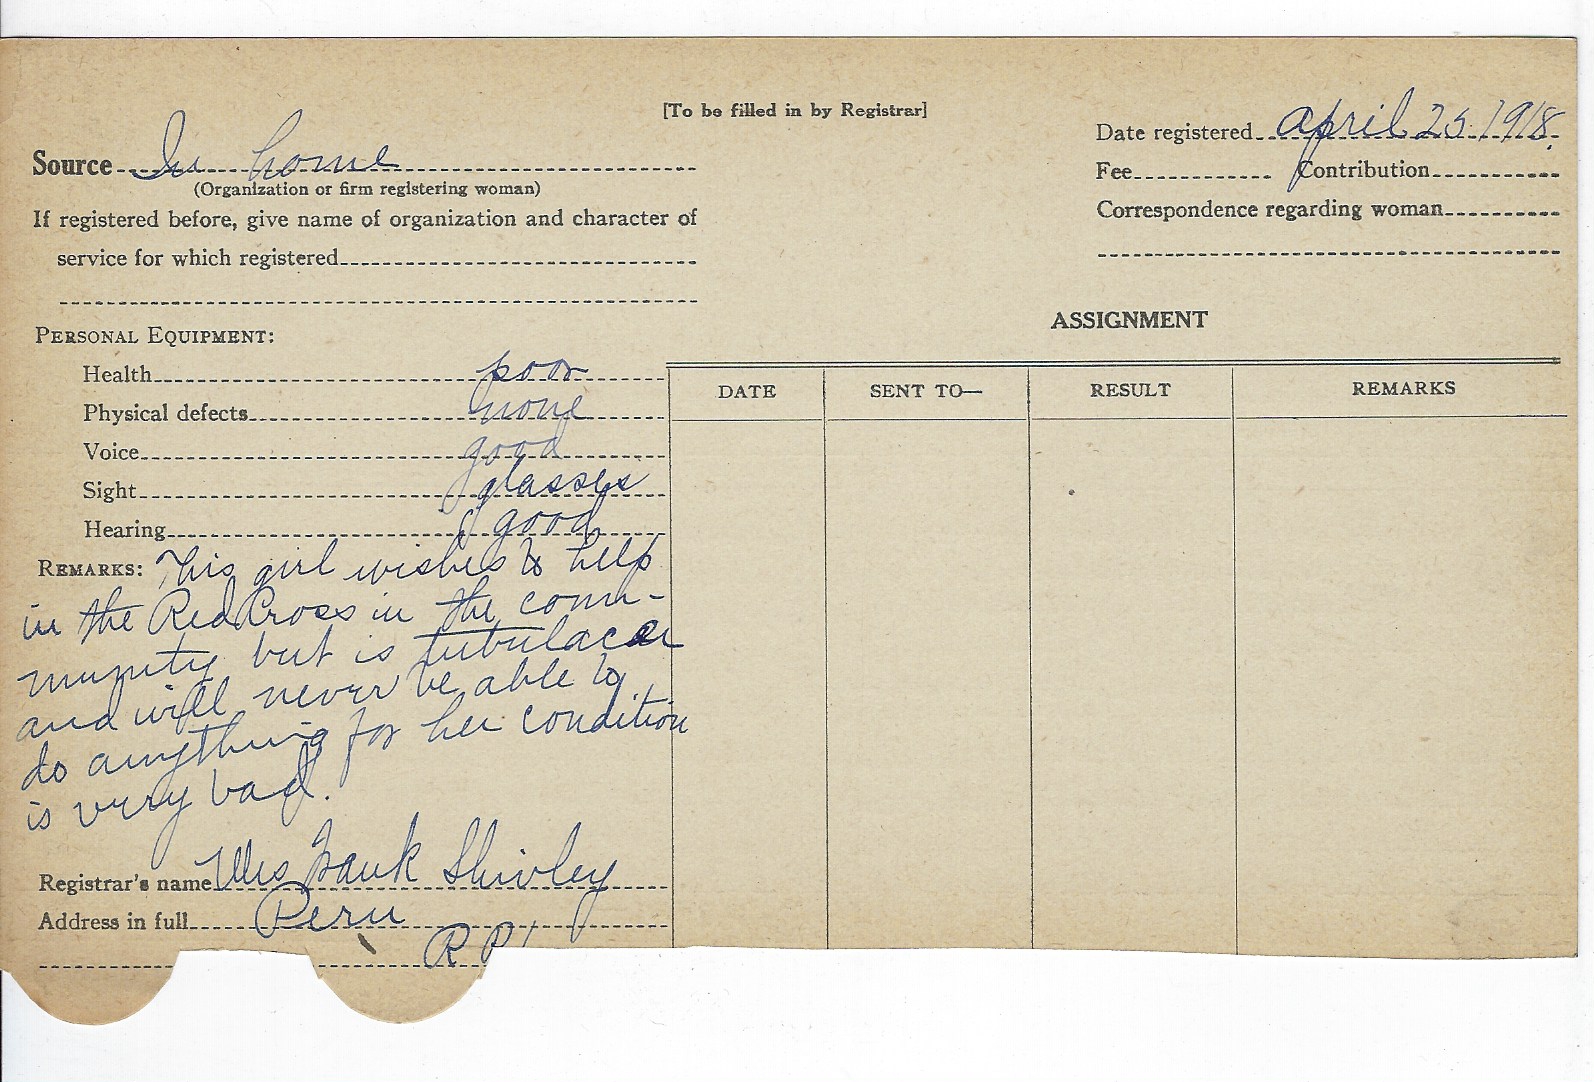 [To be filled in by Registrar]
Date registered April 25 1918.
Source In home
(Organization or firm registering woman)
Fee Contribution
If registered before, give name of organization and character of
service for which registered
Correspondence regarding woman
PERSONAL EQUIPMENT:
Health poor
Physical defects none
Voice good
Sight glasses
Hearing good
REMARKS: This girl wishes to help
in the Red Cross in the com-
munity but is tubulacar
and will never be able to
do anything for her condition
is very bad.
Registrar's name Mrs Frank Shivley
Address in full Peru
ASSIGNMENT
DATE SENT TO— RESULT REMARKS